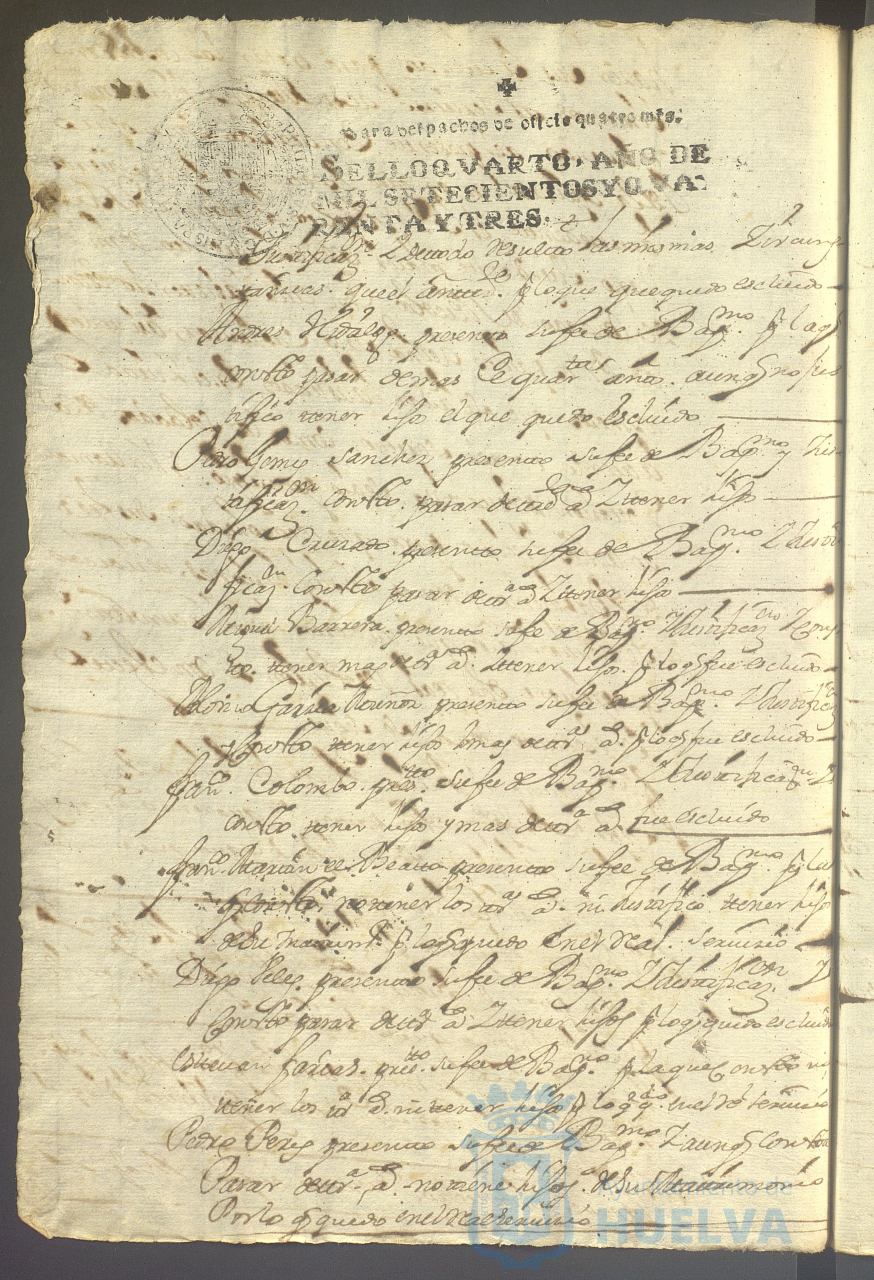 Para despachos de oficio quatro mrs.
SELLO QVARTO, AÑO DE
MIL SETECIENTOS Y QVA-
RENTA Y TRES.
Justificaz.on Z de todo resulto las mismas Zircuns
tanzias que el antte.de p.r lo que quequedo escluido
Andres Hidalgo presento su fee de Bap.mo p.r la q
consto pasar de mas de quar.tas años aunq no jus
tifico ttener hijo el que quedo escluido
Pedro Gomez Sanchez presento su fee de Bap.mo y Jus
tificaz.on consto pasar de a.s Z ttener hijo
Diego Cruzado presento su fee de Bap.mo Z Justi
ficaz.on consto pasar de a.s Z ttener hijo
Miguel Barrera presento su fe de Bap.mo Z Justificaz.on Z cons
to ttener mas a.s Z ttener hijo p.r lo q fue escluido
Alonso Garcia Muñoz presento su fe de Bap.mo Z Justificaz
y consto ttener hijo Z mas de a.s p.r lo q fue escluido
Fran.co Colombo pres.tto su fee de Bap.mo Z Justificaz.on Z
consto ttener hijo y mas de a.s fue escluido
Fran.co Martin el Beatto presento su fee de Bap.mo p.r la
q consto no ttener los a.s ni Justifico ttener hijo
de su Matrim.o p.r lo q quedo en el Real servicio
Diego Velez presento su fee de Bap.mo Z Justificaz.on Z
consto pasar de a.s Z ttener hijos p.r lo q quedo escluido
Esttevan Farias pres.tto su fee de Bap.mo p.r la que consto no
ttener los a.s ni ttener hijo p.r lo q q.do en el R.l servicio
Pedro Perez presento su fee de Bap.mo Z aunq consto
Pasar de a.s no ttiene hijos de su Matrimonio
Por lo q quedo en el Real servicio
HUELVA